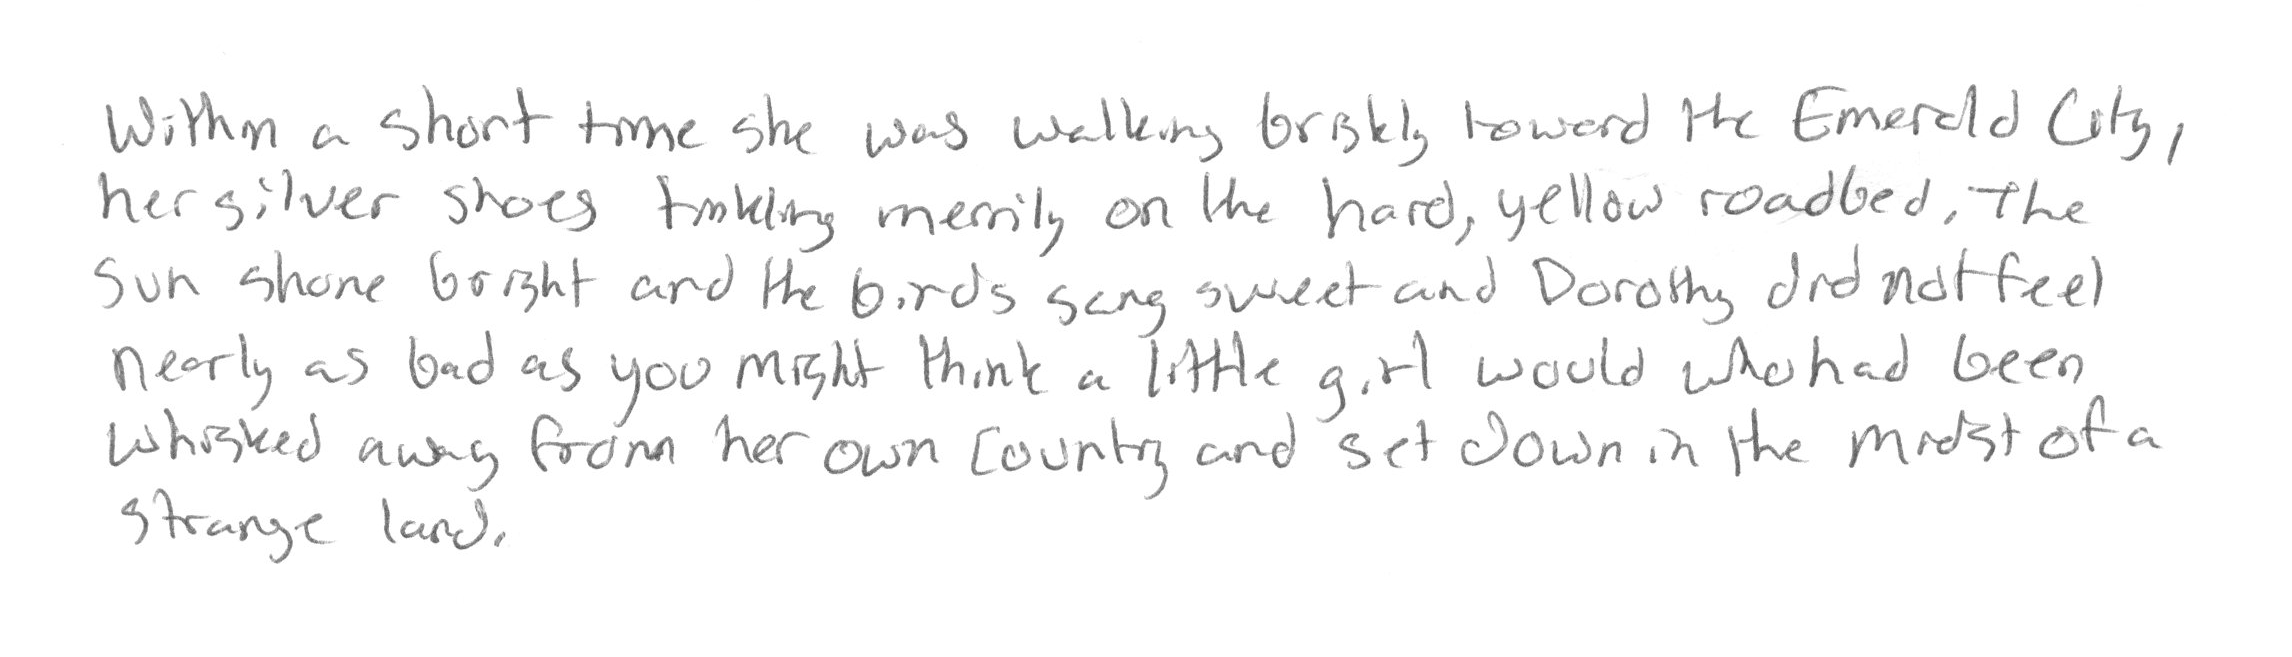 Within a short time she was walking briskly toward the Emerald City,
her silver shoes tinkling merrily on the hard, yellow roadbed. The
sun shone bright and the birds sang sweet and Dorothy did not feel
nearly as bad as you might think a little girl would who had been
whisked away from her own country and set down in the midst of a
strange land.